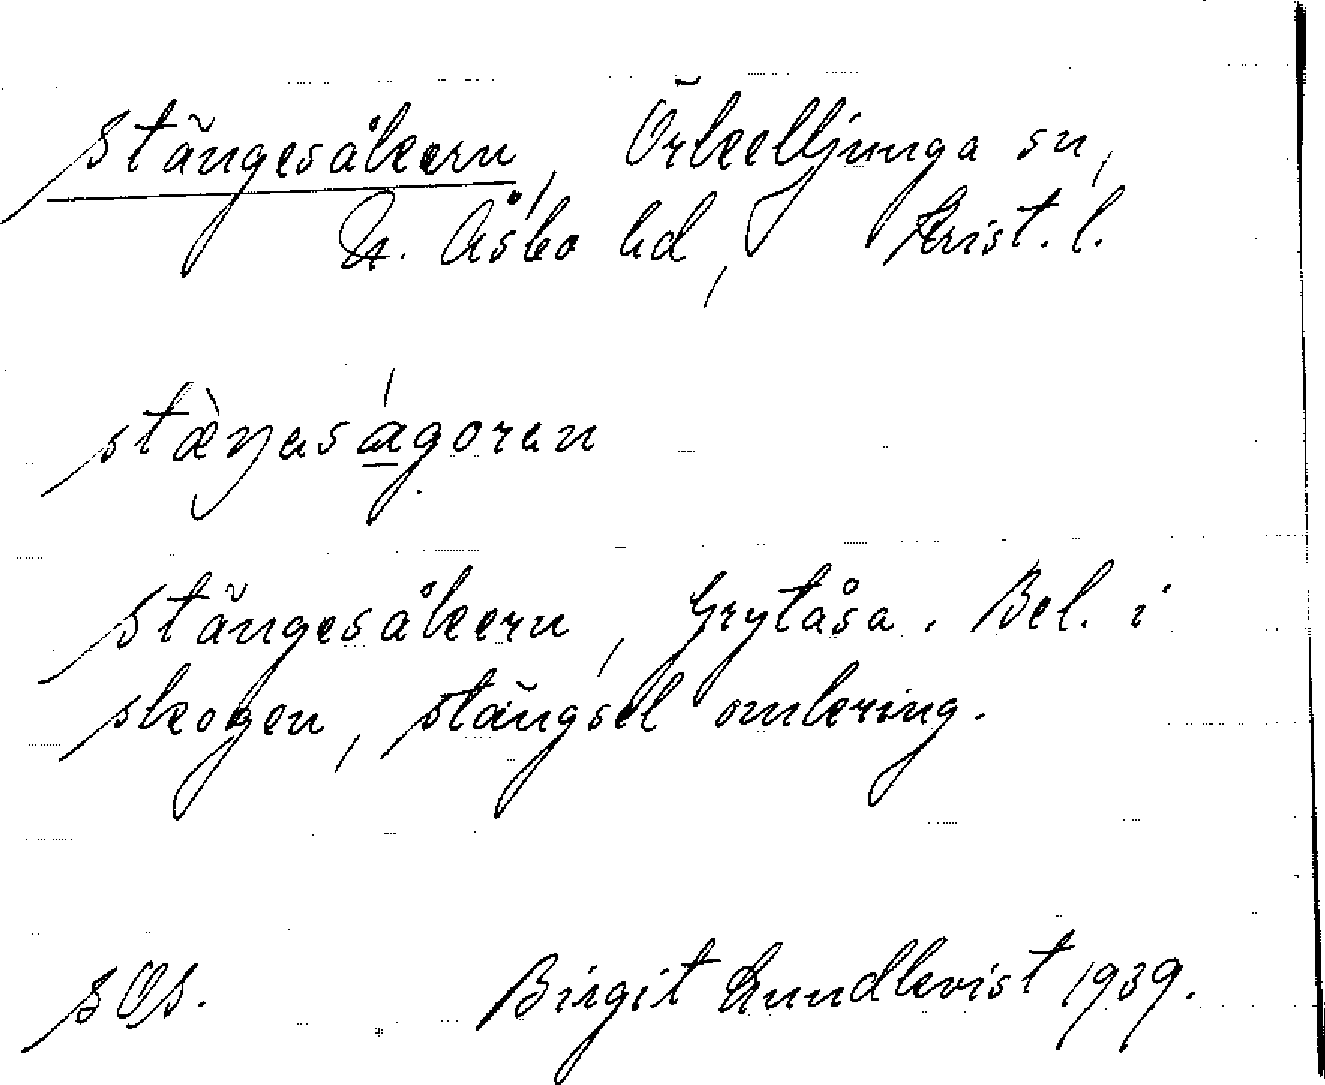 Stängesåkern, Örkelljunga sn,
N. Åsbo hd, Krist. l.
stæ̀ŋasági̱oran
Stängesåkern, Grytåsa. Bel. i
skogen, stängsel omkring.
Birgit Lundkvist 1939.